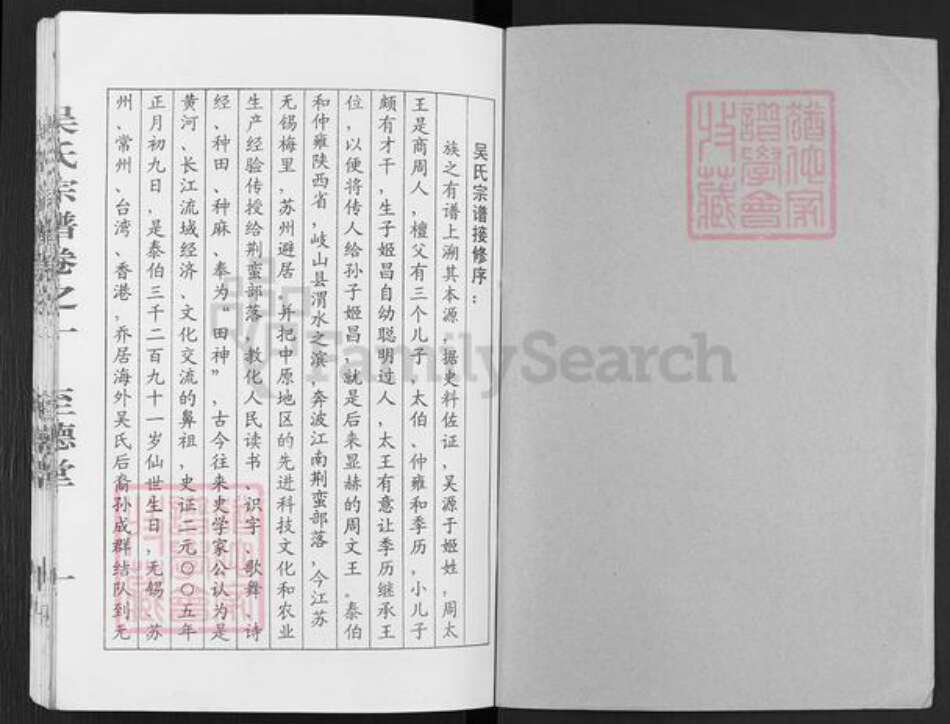 吴氏宗谱接修序：
族之有谱上溯其本源，据史料佐证，吴源于姬姓，周太
王是商周人，檀父有三个儿子，太伯、仲雍和季历，小儿子
颇有才干，生子姬昌自幼聪明过人，太王有意让季历继承王
位，以便将传人给孙子姬昌，就是后来显赫的周文王。泰伯
和仲雍陕西省，岐山县渭水之滨，奔波江南荆蛮部落，今江苏
无锡梅里，苏州避居，并把中原地区的先进科技文化和农业
生产经验传授给荆蛮部落，教化人民读书、识字、歌舞、诗
经、种田、种麻、奉为“田神”，古今往来史学家公认为是
黄河、长江流域经济、文化交流的鼻祖，史证二元〇〇五年
正月初九日，是泰伯三千二百九十一岁仙世生日，无锡、苏
州、常州、台湾、香港，乔居海外吴氏后裔孙成群结队到无
吴氏宗谱卷之一
至德堂
一
FamilySearch